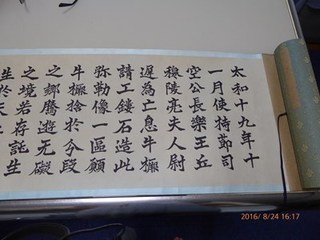 太和十九年十
一月使持節司
空公長樂王丘
穆陵亮夫人尉
遲為亡息牛橛
請工鏤石造此
弥勒像一區願
牛橛捨於分段
之鄉騰遊无礙
之境若存託生
生於天上
2016/8/24 16:17